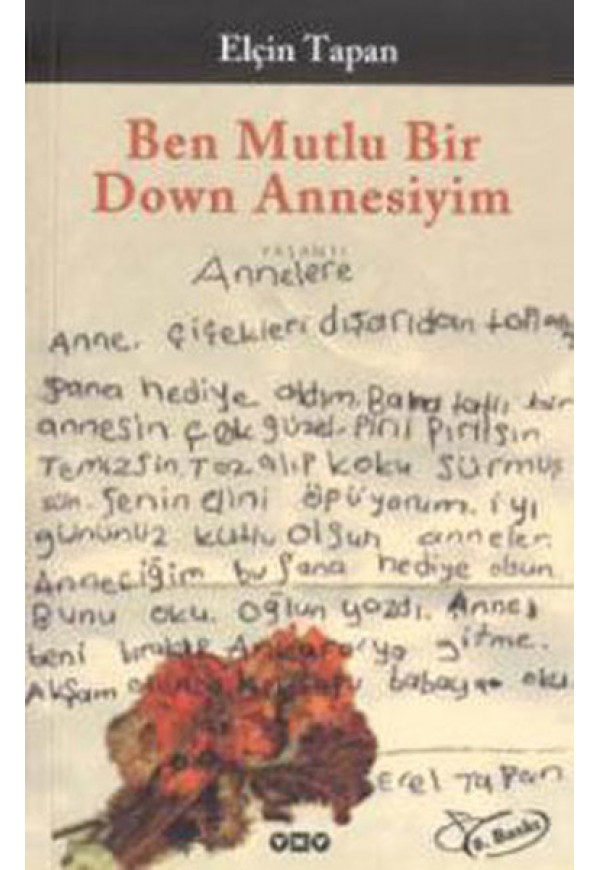 Elçin Tapan
Ben Mutlu Bir
Down Annesiyim
YAŞANTI
Annelere
Anne. Çiçekleri dışarıdan
Şana hediye aldım. Bana tatlı bir
annesin çok güzel. Piril Pirilsin
Temizsin. Toz alıp koku Sürmüş
sün. Şenin elini öpüyorum. iyi
gününüz kutlu olsun anneler.
Anneciğim bu Şana hediye olsun.
Bunu oku. Oğlun yazdı. Anne
beni Ankara'ya gitme.
Akşam babaya oku.
Erel Tapan
YKY
8. Baskı